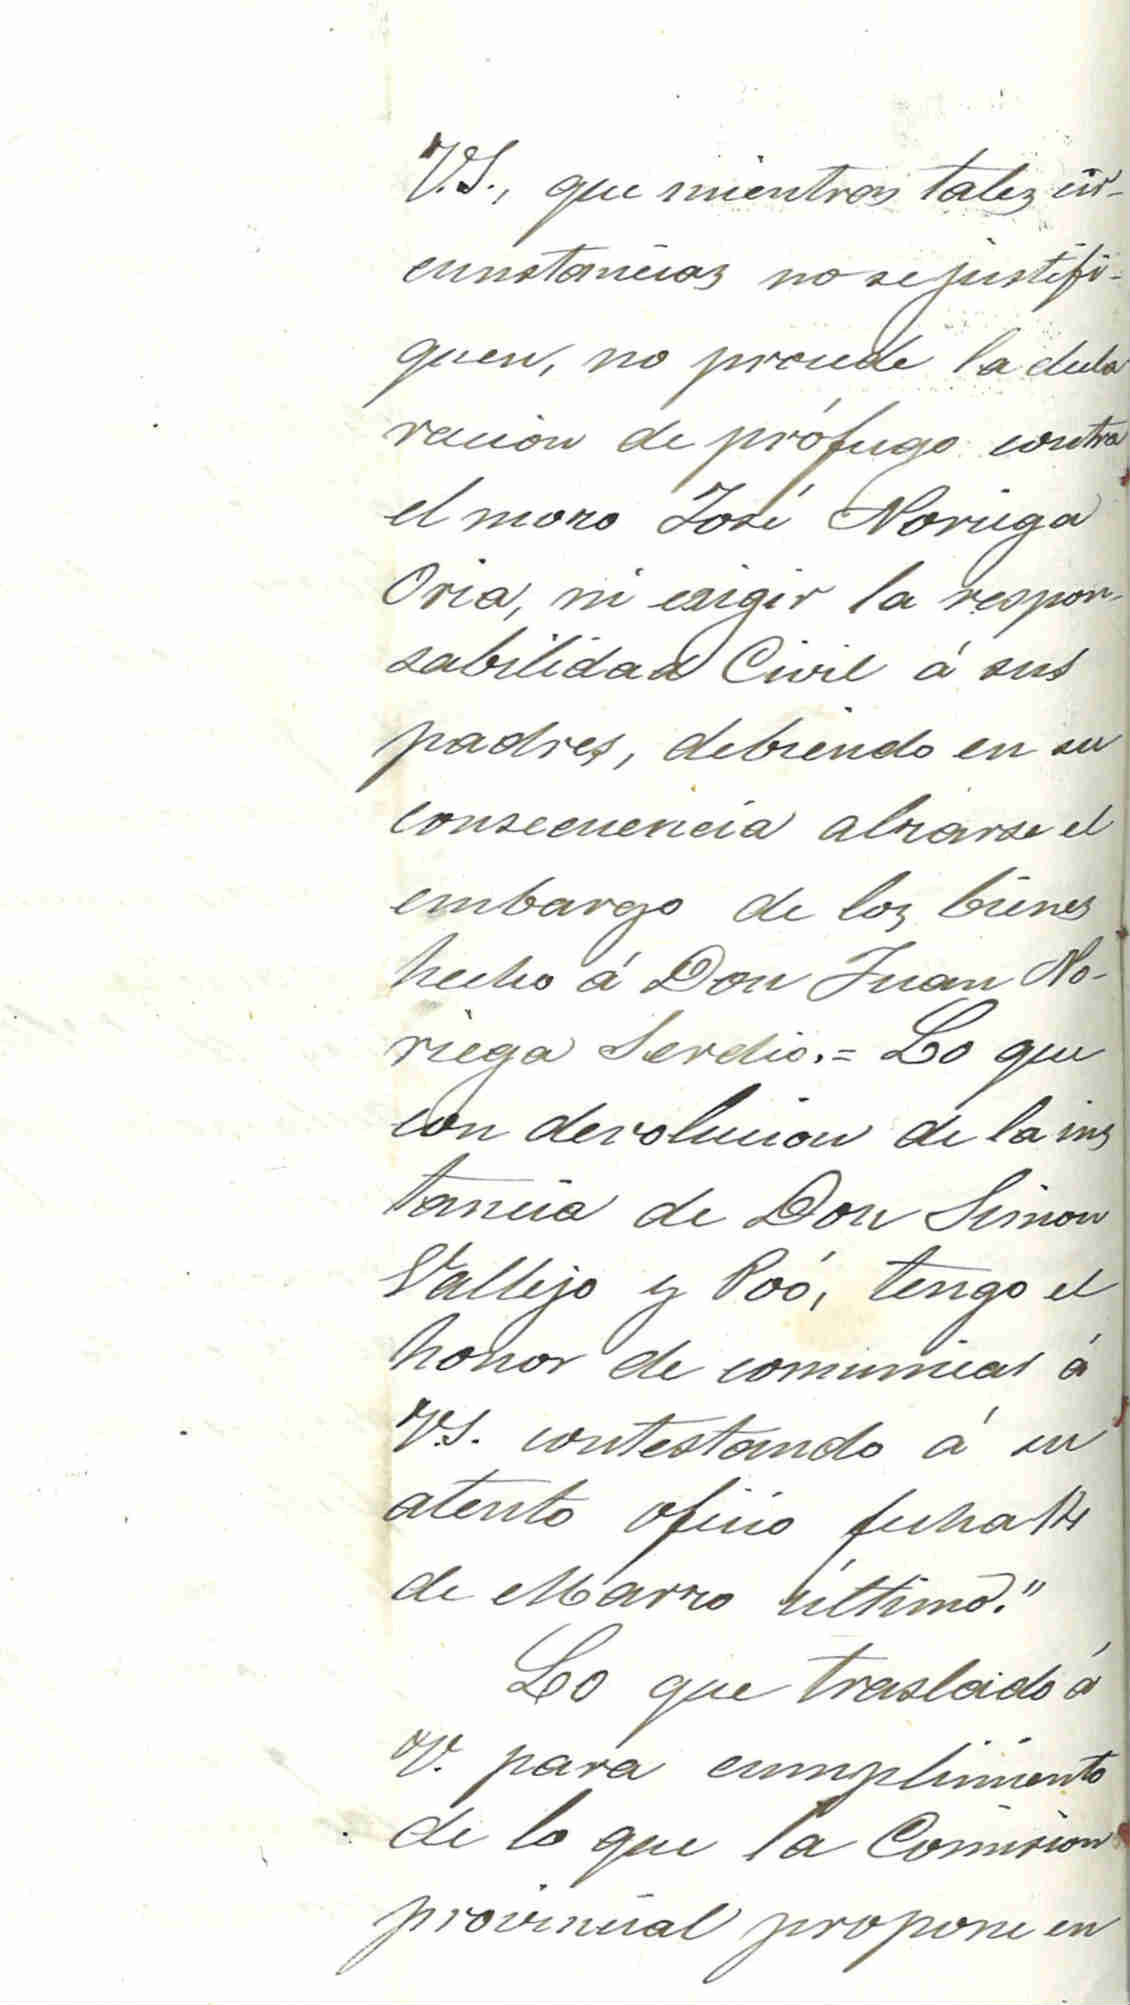 V.S., que mientras tales cir-
cunstancias no se justifi-
quen, no procede la decla
racion de prófugo contra
el mozo José Noriega
Oria, ni exigir la respon-
sabilidad Civil á sus
padres, debiendo en su
consecuencia alzarse el
embargo de los bienes
hecho á Don Juan No-
riega Serdio.= Lo que
con devolucion de la ins
tancia de Don Simon
Vallejo y Poó, tengo el
honor de comunicar á
V.S. contestando á su
atento oficio fecha 14
de Marzo último."
Lo que traslado á
V. para cumplimiento
de lo que la Comision
provincial propone en